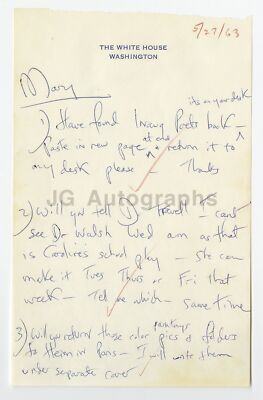 5/27/63
THE WHITE HOUSE
WASHINGTON
Mary
its on your desk
1) Have found Living Poets book –
at end
Paste in new page & return it to
my desk please – Thanks
JG Autographs
2) Will you tell Dr Travell – can't
see Dr Walsh Wed am as that
is Caroline's school play – She can
make it Tues Thurs or Fri that
week – Tell me which – same time
paintings
3) Will you return these color pics of folders
to them in Paris – I will write them
under separate cover